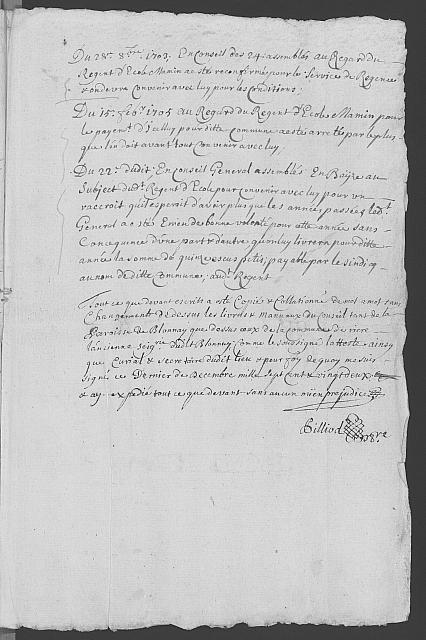 Du 28e 8bre 1703. En Conseil des 24 assemblés au Regard du
Regent d'Ecole Mamin a esté reconfirmé pour le Service de Regence
& on devra Convenir avec luy pour les Conditions;
Du 15e Feb.r 1705 au Regard du Regent d'Ecole Mamin pour
le payem.t d'Icelluy pour ditte Commune a esté arresté par le plus
que l'on doit avant tout Convenir avec luy.
Du 22e dudit En Conseil General assemblés En Baÿe au
Subject dud.t Regent d'Ecole pour Convenir avec luy pour un
raccroit qu'il esperait d'avoir plus que les années passées led.t
General a esté Emeu de bonne volonté pour cette année sans
Consequence d'une part & d'autre qu'on luy livrera pour ditte
année la somme de quinze escus petis, payable par le sindicq
au nom de ditte Commune, aud.t Regent
Tout ce que devant escrit a esté Copié & Collationné de mot a mot sans
Changement de dessus les livres & Manuaux du Conseil tant de la
Parroisse de Blonnay que dessus ceux de la commune de rière
l'ancienne seig.rie dudit Blonnay, Comme le soussigné l'atteste, ainsy
que Curial & secretaire dudit lieu & pour foy de quoy me suis
signé ce Dernier de Decembre mille sept cent & vingt deux,
& ay expedié tout ce que devant sans aucun mien prejudice
Billiod